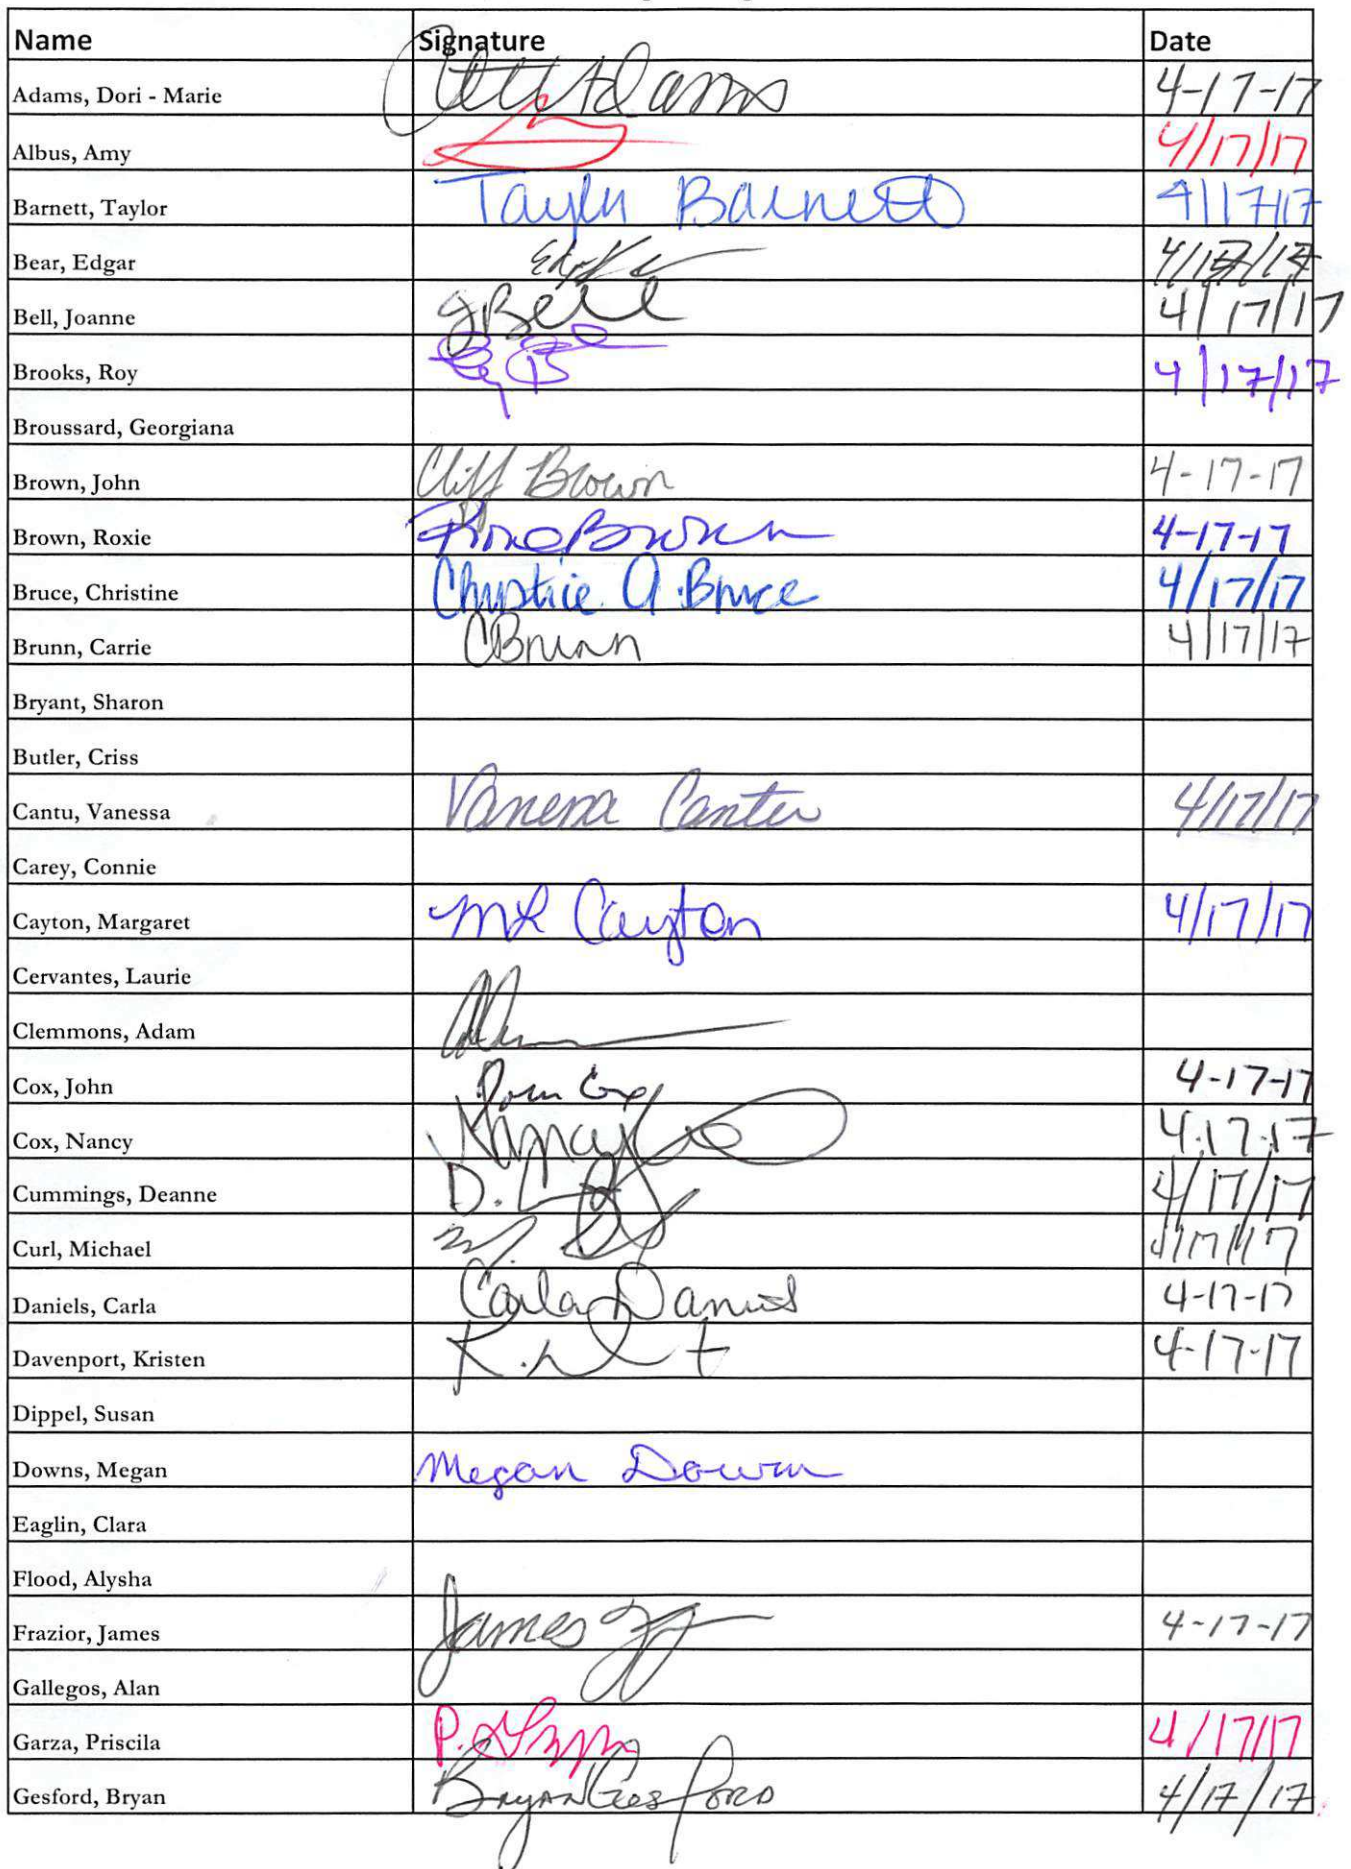 Name Signature Date
Adams, Dori - Marie Adams 4-17-17
Albus, Amy 4/17/17
Barnett, Taylor Taylor Barnett 4/17/17
Bear, Edgar 4/17/17
Bell, Joanne JBell 4/17/17
Brooks, Roy 4/17/17
Broussard, Georgiana
Brown, John Cliff Brown 4-17-17
Brown, Roxie Brown 4-17-17
Bruce, Christine Christie A. Bruce 4/17/17
Brunn, Carrie CBrunn 4/17/17
Bryant, Sharon
Butler, Criss
Cantu, Vanessa Vanessa Cantu 4/17/17
Carey, Connie
Cayton, Margaret MR Cayton 4/17/17
Cervantes, Laurie
Clemmons, Adam
Cox, John John Cox 4-17-17
Cox, Nancy Nancy 4.17.17
Cummings, Deanne D. 4/17/17
Curl, Michael 4/17/17
Daniels, Carla Carla Daniels 4-17-17
Davenport, Kristen K. 4-17-17
Dippel, Susan
Downs, Megan Megan Downs
Eaglin, Clara
Flood, Alysha
Frazior, James James 4-17-17
Gallegos, Alan
Garza, Priscila P. 4/17/17
Gesford, Bryan Bryan Gesford 4/17/17